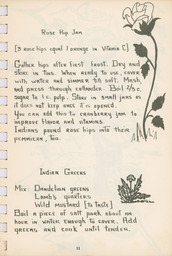 Rose Hip Jam
(3 rose hips equal 1 orange in Vitamin C)
Gather hips after first frost. Dry and
store in tins. When ready to use, cover
with water and simmer till soft. Mash
and press through collander. Boil 2/3 c.
sugar to 1 c. pulp. Store in small jars as
it does not keep once it is opened.
You can add this to cranberry jam to
improve flavor and vitamins.
Indians pound rose hips into their
pemmican, too.
Indian Greens
Mix: Dandelion greens
Lamb's quarters
Wild mustard (to taste)
Boil a piece of salt pork about an
hour in water enough to cover. Add
greens and cook until tender.
11